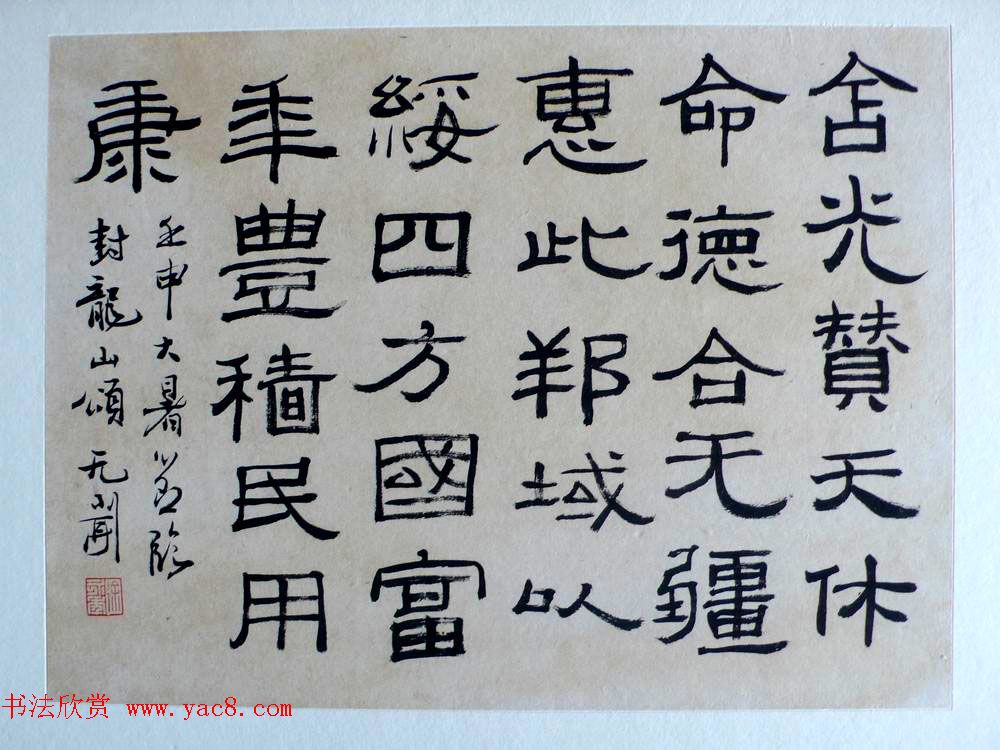 舍光贊天休
命德合无疆
惠此邦域以
綏四方國富
年豐穡民用
康
壬申大暑節臨
封龍山頌
书法欣赏 www.yac8.com